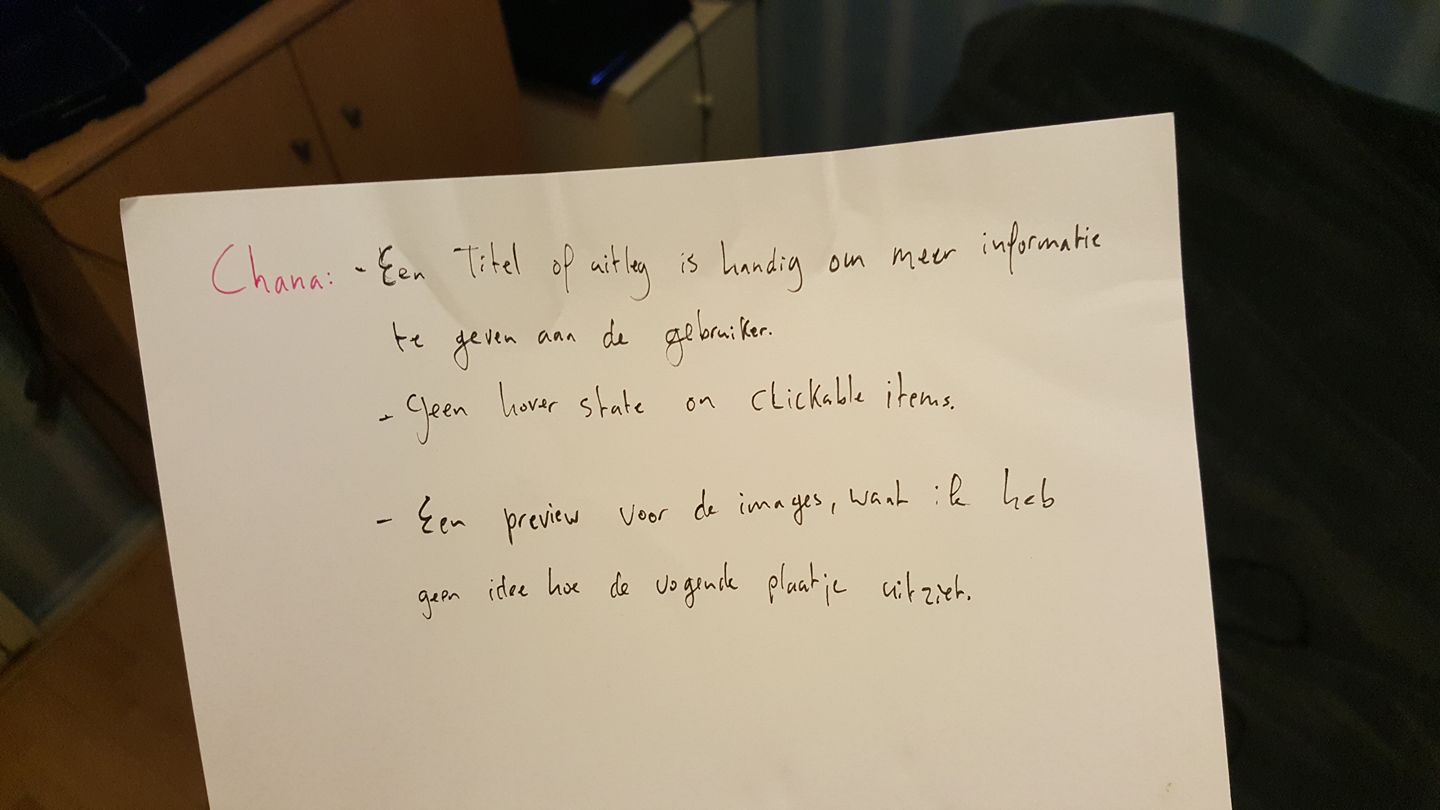 Chana: - Een Titel of uitleg is handig om meer informatie
te geven aan de gebruiker.
- Geen hover state on clickable items.
- Een preview voor de images, want ik heb
geen idee hoe de vogende plaatje uitziet.